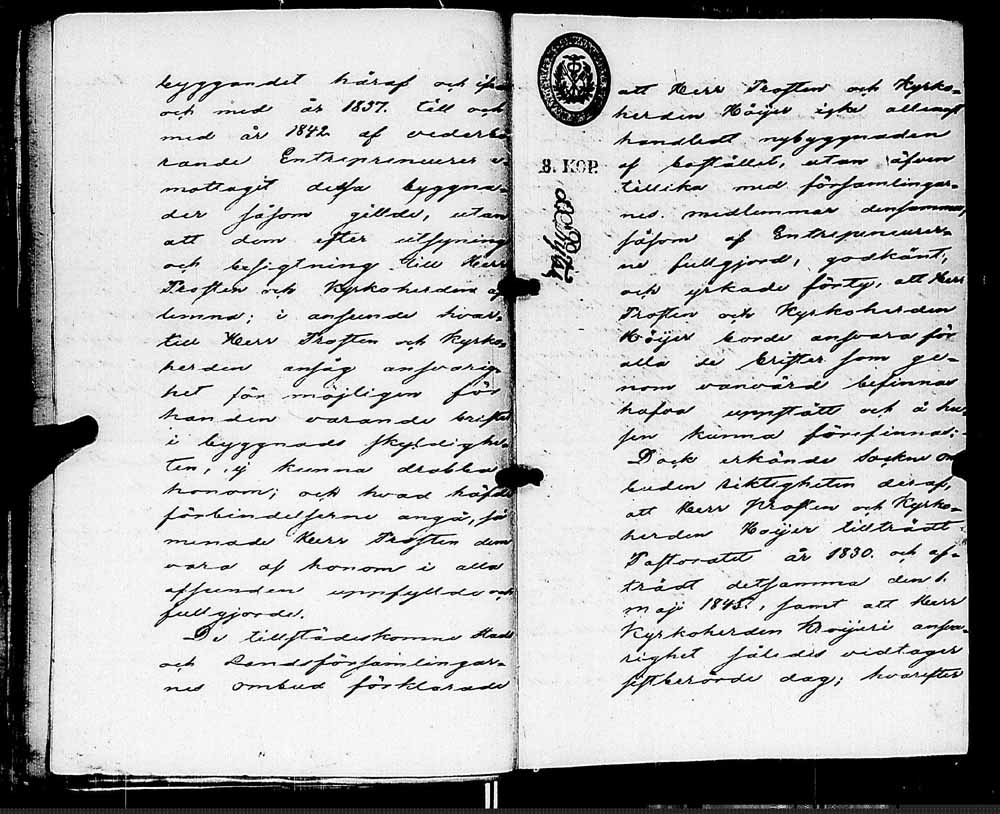 byggandet häraf och ifrån
och med år 1837. till och
med år 1842 af vederbö
rande Entrepreneurer e-
mottagit dessa byggna-
der såsom gillde, utan
att dem efter utsyning
och besigtning till Herr
Prosten och Kyrkoherden af
lemna; i anseende hvar-
till Herr Prosten och Kyrko-
herden ansåg ansvarig-
het för möjligen för
handen varande brister
i byggnads skyldighe-
ten, ej kunna drabba
honom; och hvad häfde
förbindelserne angå, så
menade Herr Prosten dem
vara af honom i alla
afseenden uppfyllde och
fullgjorde.
De tillstädeskomne Stads
och Landsförsamlingar-
nes ombud förklarade
8. KOP.
att Herr Prosten och Kyrko-
herden Höijer icke allenast
handledt nybyggnaden
af bostället, utan äfven
tillika med församlingar-
nes medlemmar densamma,
såsom af Entrepeneurer-
ne fullgjord, godkänt,
och yrkade förty, att Herr
Prosten och Kyrkoherden
Höijer borde ansvara för
alla de brister som ge-
nom vanvård befinnas
hafva uppstått och å hu-
sen kunna förefinnas;
Dock erkände Sockne om
buden riktigheten deraf,
att Herr Prosten och Kyrko-
herden Höijer tillträdt
Pastoratet år 1830. och af-
trädt detsamma den 1.
maji 1845, samt att Herr
Kyrkoherden Höijers ansva-
righet således vidtager
sistberörde dag; hvarefter